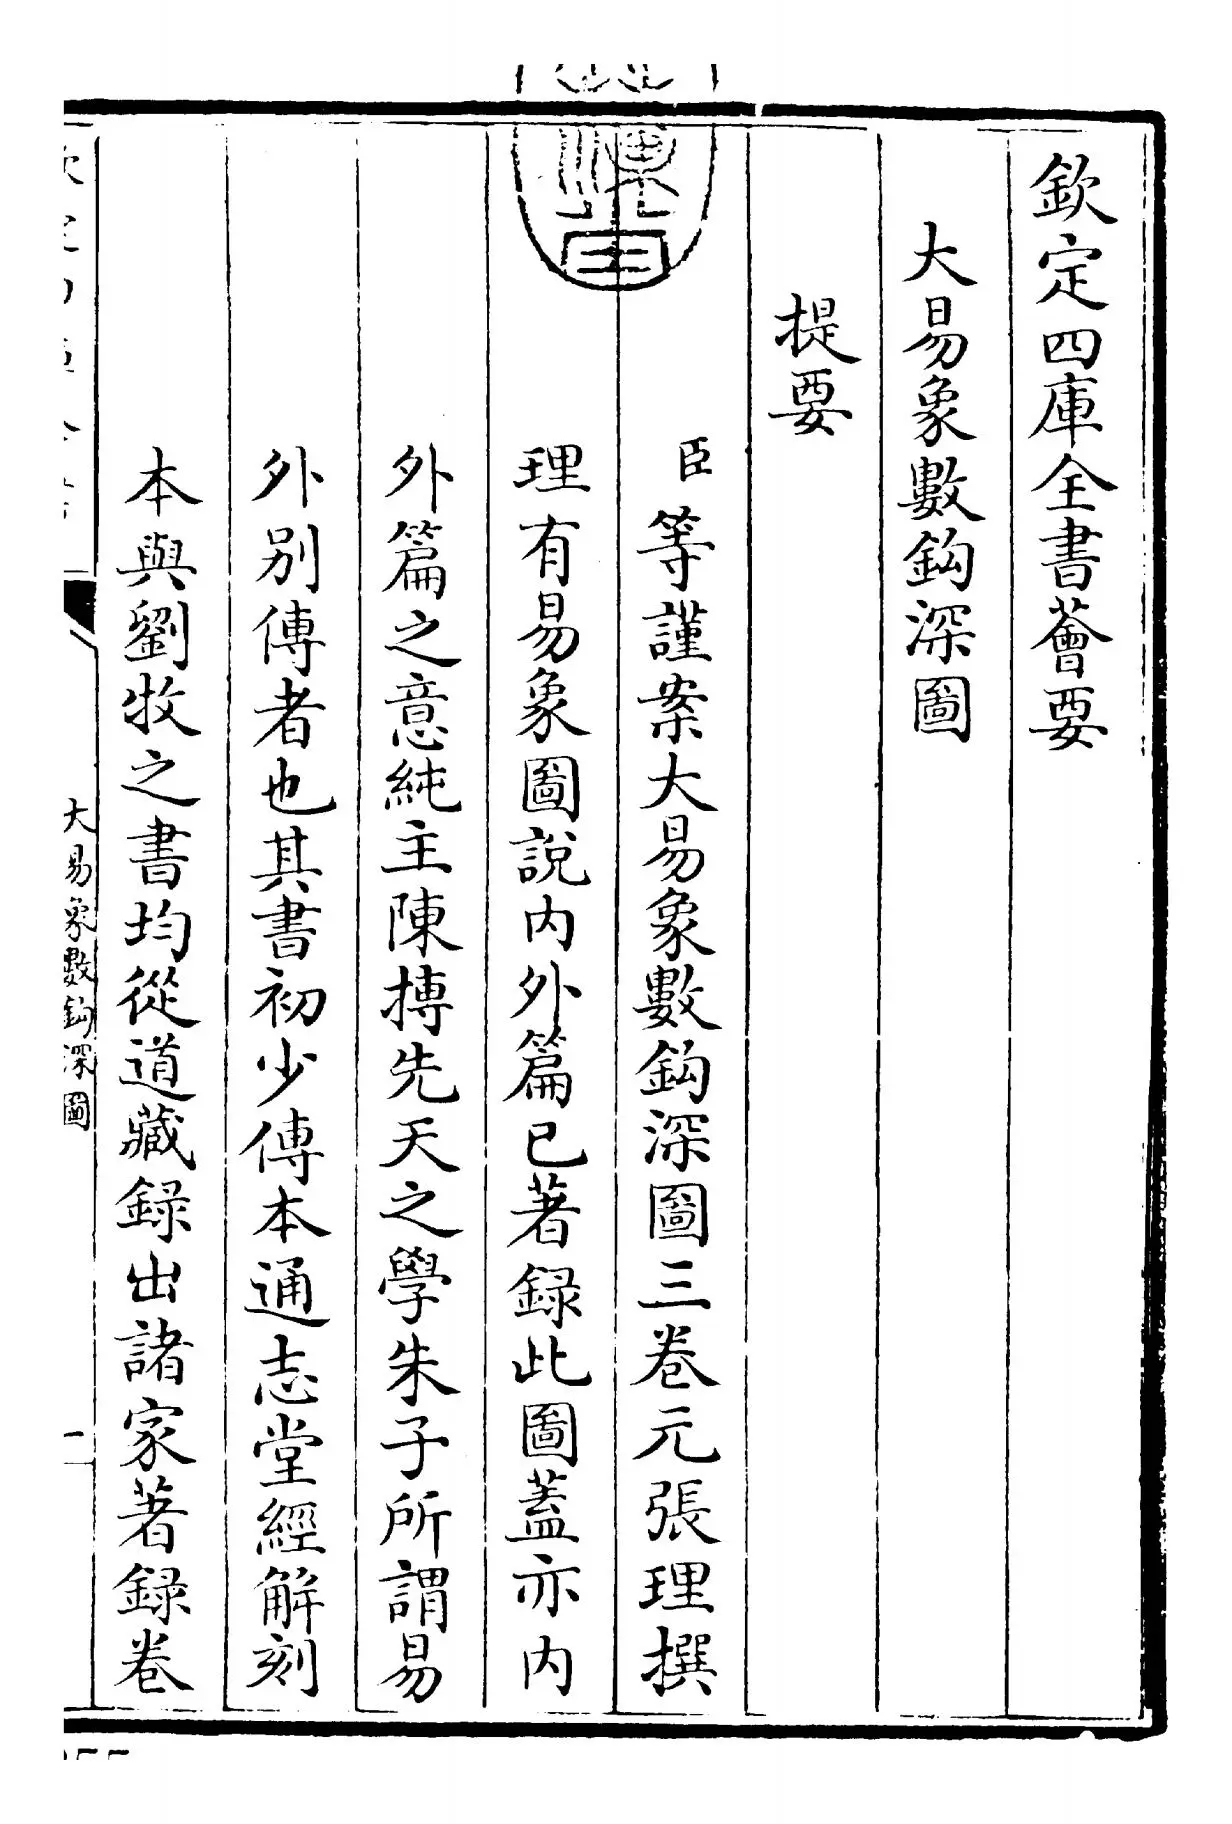 欽定四庫全書薈要
大易象數鈎深圖
提要
臣等謹案大易象數鈎深圖三卷元張理撰
理有易象圖說内外篇已著録此圖蓋亦内
外篇之意純主陳摶先天之學朱子所謂易
外别傳者也其書初少傳本通志堂經解刻
本與劉牧之書均從道藏録出諸家著録卷
大易象數鈎深圖
一